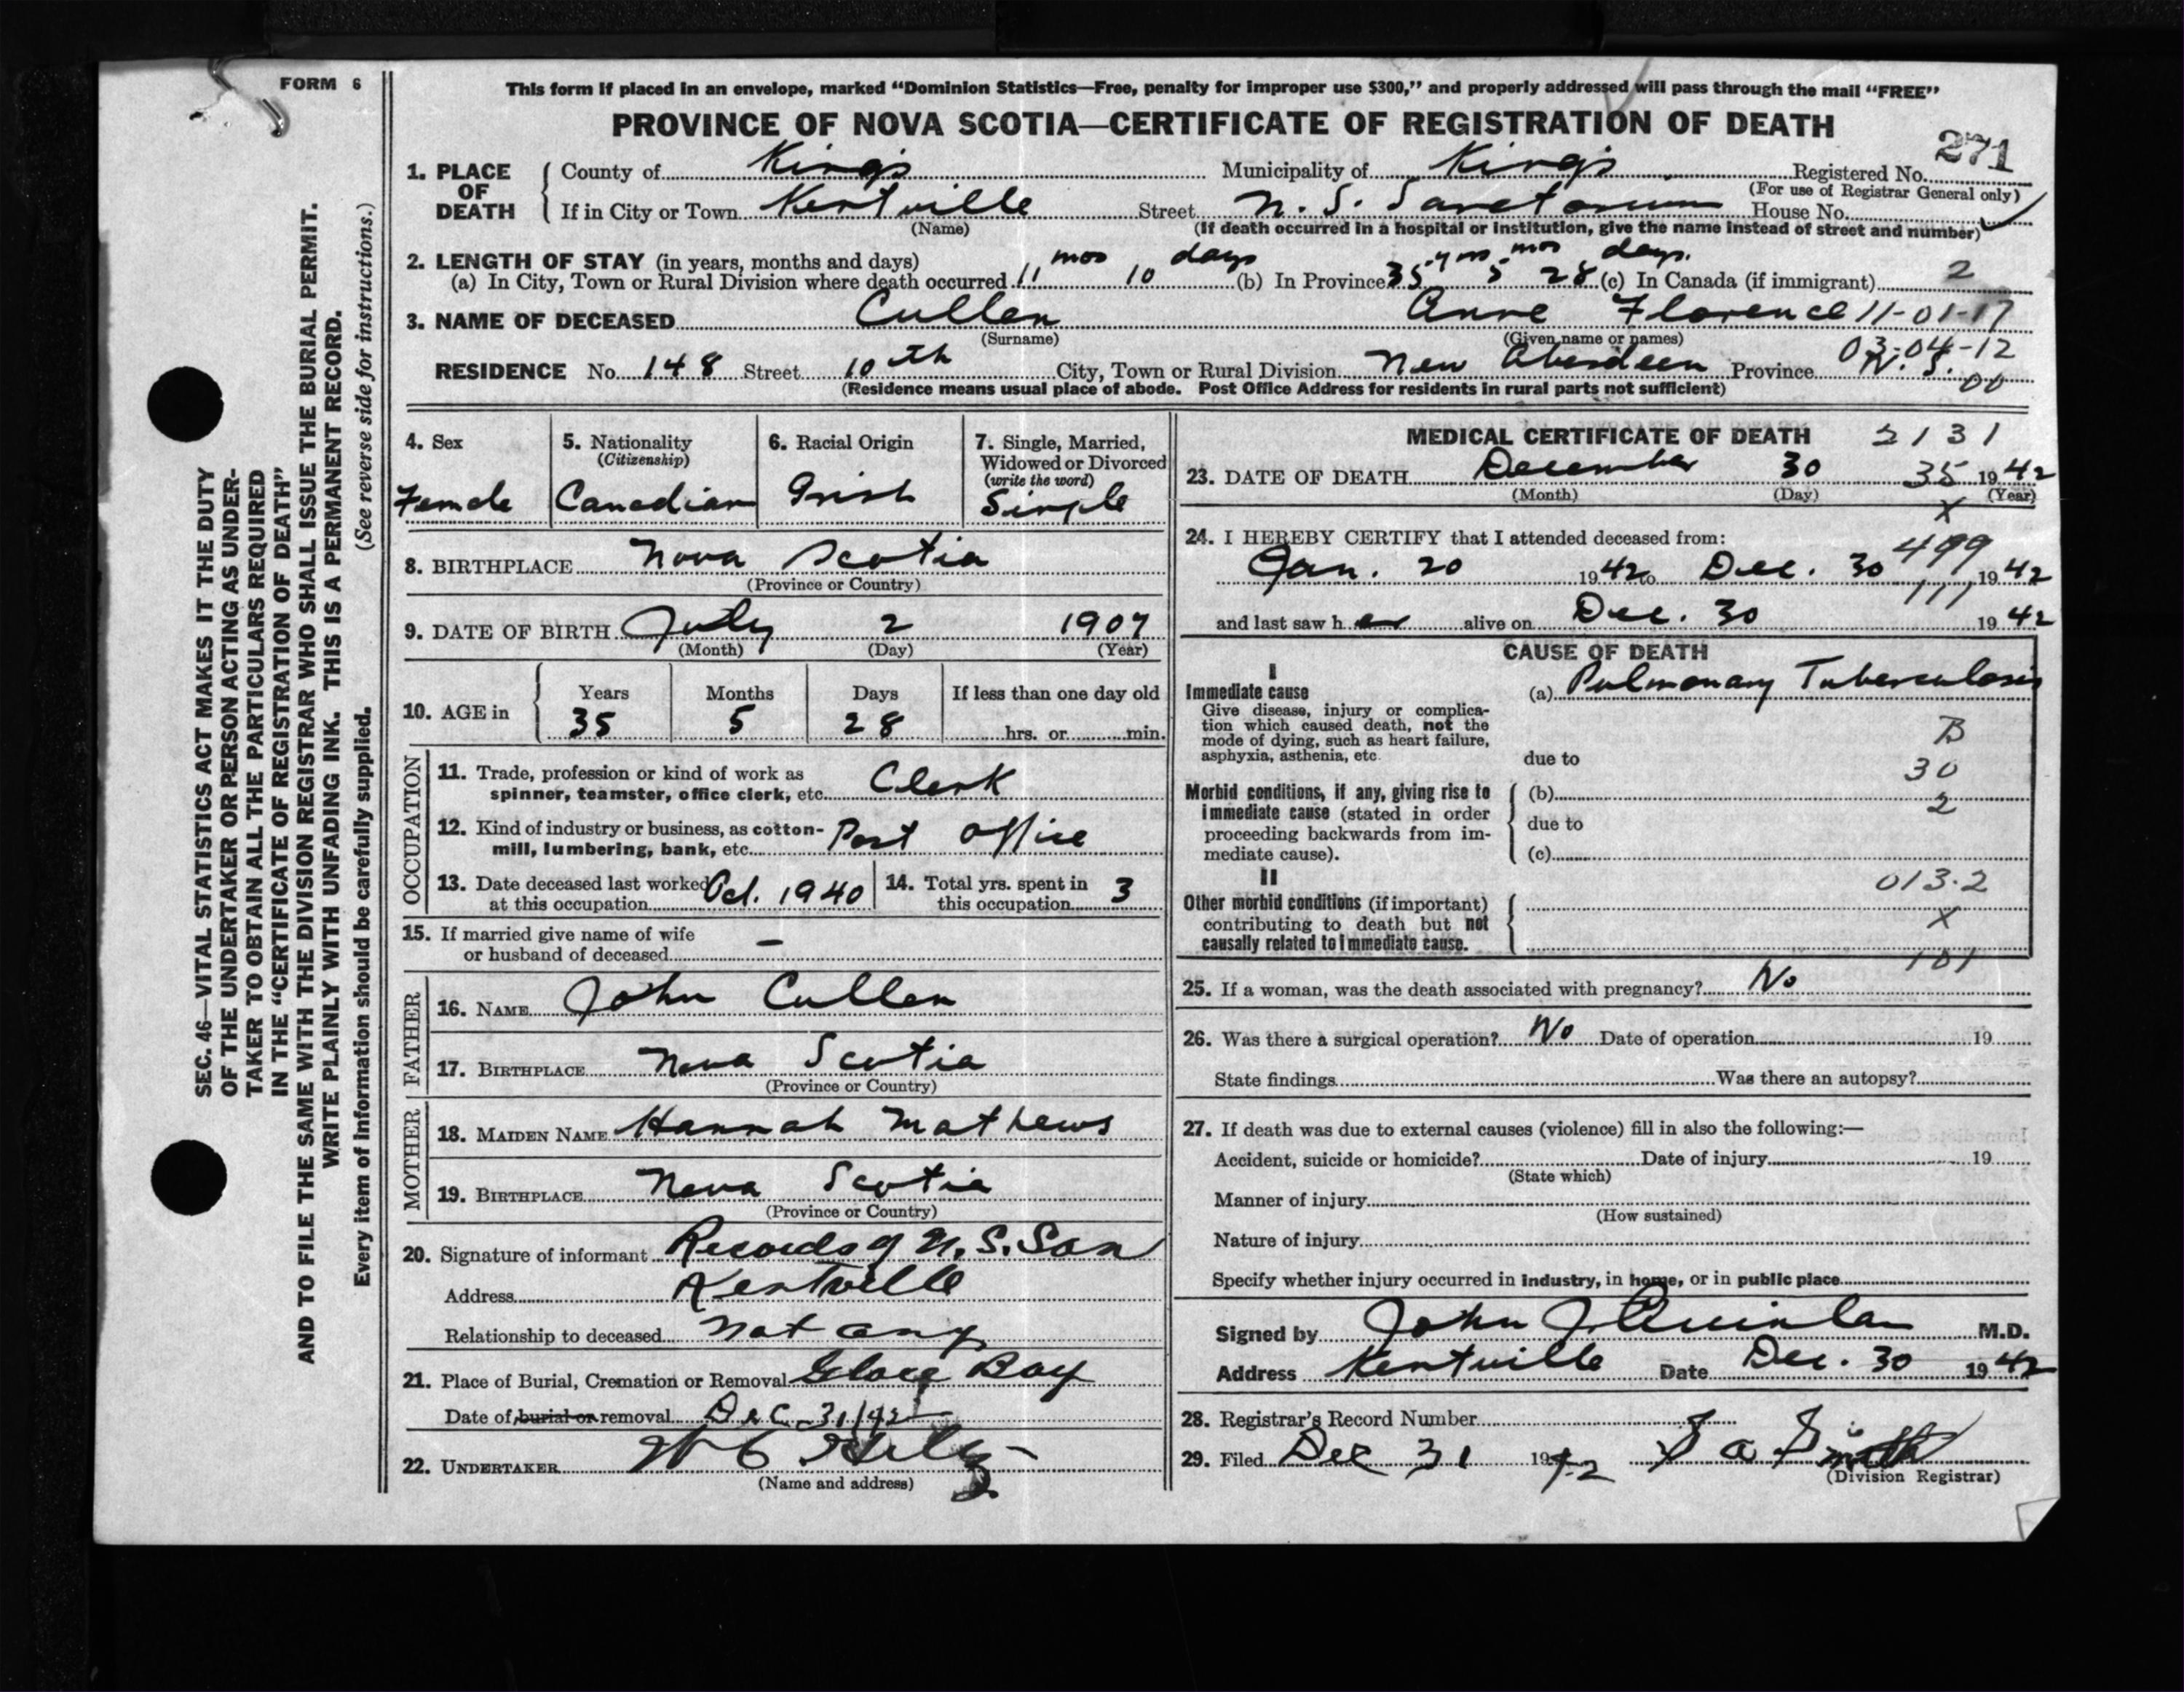 FORM 6
This form if placed in an envelope, marked "Dominion Statistics—Free, penalty for improper use $300," and properly addressed will pass through the mail "FREE"
PROVINCE OF NOVA SCOTIA—CERTIFICATE OF REGISTRATION OF DEATH
271
1. PLACE OF DEATH County of Kings Municipality of Kings Registered No.
(For use of Registrar General only)
If in City or Town Kentville Street N. S. Sanatorium House No.
(Name) (If death occurred in a hospital or institution, give the name instead of street and number)
2. LENGTH OF STAY (in years, months and days)
(a) In City, Town or Rural Division where death occurred 11 mos 10 days (b) In Province 35 yrs 5 mos 28 days. (c) In Canada (if immigrant) 2
3. NAME OF DECEASED Cullen Anne Florence 11-01-17
(Surname) (Given name or names) 03-04-12
RESIDENCE No. 148 Street 10th City, Town or Rural Division New Aberdeen Province N. S. 00
(Residence means usual place of abode. Post Office Address for residents in rural parts not sufficient)
4. Sex
Female
5. Nationality
(Citizenship)
Canadian
6. Racial Origin
Irish
7. Single, Married, Widowed or Divorced
(write the word)
Single
8. BIRTHPLACE Nova Scotia
(Province or Country)
9. DATE OF BIRTH July 2 1907
(Month) (Day) (Year)
10. AGE in Years Months Days If less than one day old
35 5 28 hrs. or min.
OCCUPATION
11. Trade, profession or kind of work as
spinner, teamster, office clerk, etc. Clerk
12. Kind of industry or business, as cotton-
mill, lumbering, bank, etc. Post Office
13. Date deceased last worked
at this occupation Oct. 1940
14. Total yrs. spent in
this occupation 3
15. If married give name of wife
or husband of deceased –
FATHER
16. NAME John Cullen
17. BIRTHPLACE Nova Scotia
(Province or Country)
MOTHER
18. MAIDEN NAME Hannah Mathews
19. BIRTHPLACE Nova Scotia
(Province or Country)
20. Signature of informant Records of N. S. San
Address Kentville
Relationship to deceased Not any
21. Place of Burial, Cremation or Removal Glace Bay
Date of burial or removal Dec 31/42
22. UNDERTAKER W C
(Name and address)
MEDICAL CERTIFICATE OF DEATH 2131
23. DATE OF DEATH December 30 35 1942
(Month) (Day) (Year)
X
24. I HEREBY CERTIFY that I attended deceased from:
499
Jan. 20 1942 to Dec. 30 1942
111
and last saw her alive on Dec. 30 1942
CAUSE OF DEATH
I
Immediate cause
Give disease, injury or complica-
tion which caused death, not the
mode of dying, such as heart failure,
asphyxia, asthenia, etc.
(a) Pulmonary Tuberculosis
B
due to
30
Morbid conditions, if any, giving rise to
immediate cause (stated in order
proceeding backwards from im-
mediate cause).
(b)
2
due to
(c)
II
013.2
Other morbid conditions (if important)
contributing to death but not
causally related to immediate cause.
X
101
25. If a woman, was the death associated with pregnancy? No
26. Was there a surgical operation? No Date of operation 19
State findings Was there an autopsy?
27. If death was due to external causes (violence) fill in also the following:—
Accident, suicide or homicide? Date of injury 19
(State which)
Manner of injury
(How sustained)
Nature of injury
Specify whether injury occurred in industry, in home, or in public place
Signed by John J. Quinlan M.D.
Address Kentville Date Dec. 30 1942
28. Registrar's Record Number
29. Filed Dec 31 1942 Smith
(Division Registrar)
SEC. 46—VITAL STATISTICS ACT MAKES IT THE DUTY
OF THE UNDERTAKER OR PERSON ACTING AS UNDER-
TAKER TO OBTAIN ALL THE PARTICULARS REQUIRED
IN THE "CERTIFICATE OF REGISTRATION OF DEATH"
AND TO FILE THE SAME WITH THE DIVISION REGISTRAR WHO SHALL ISSUE THE BURIAL PERMIT.
WRITE PLAINLY WITH UNFADING INK. THIS IS A PERMANENT RECORD.
Every item of information should be carefully supplied. (See reverse side for instructions.)